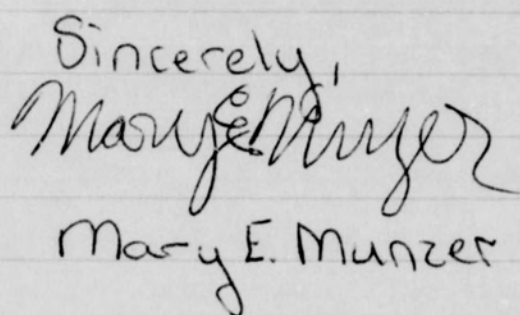 Sincerely,
Mary E. Munzer
Mary E. Munzer